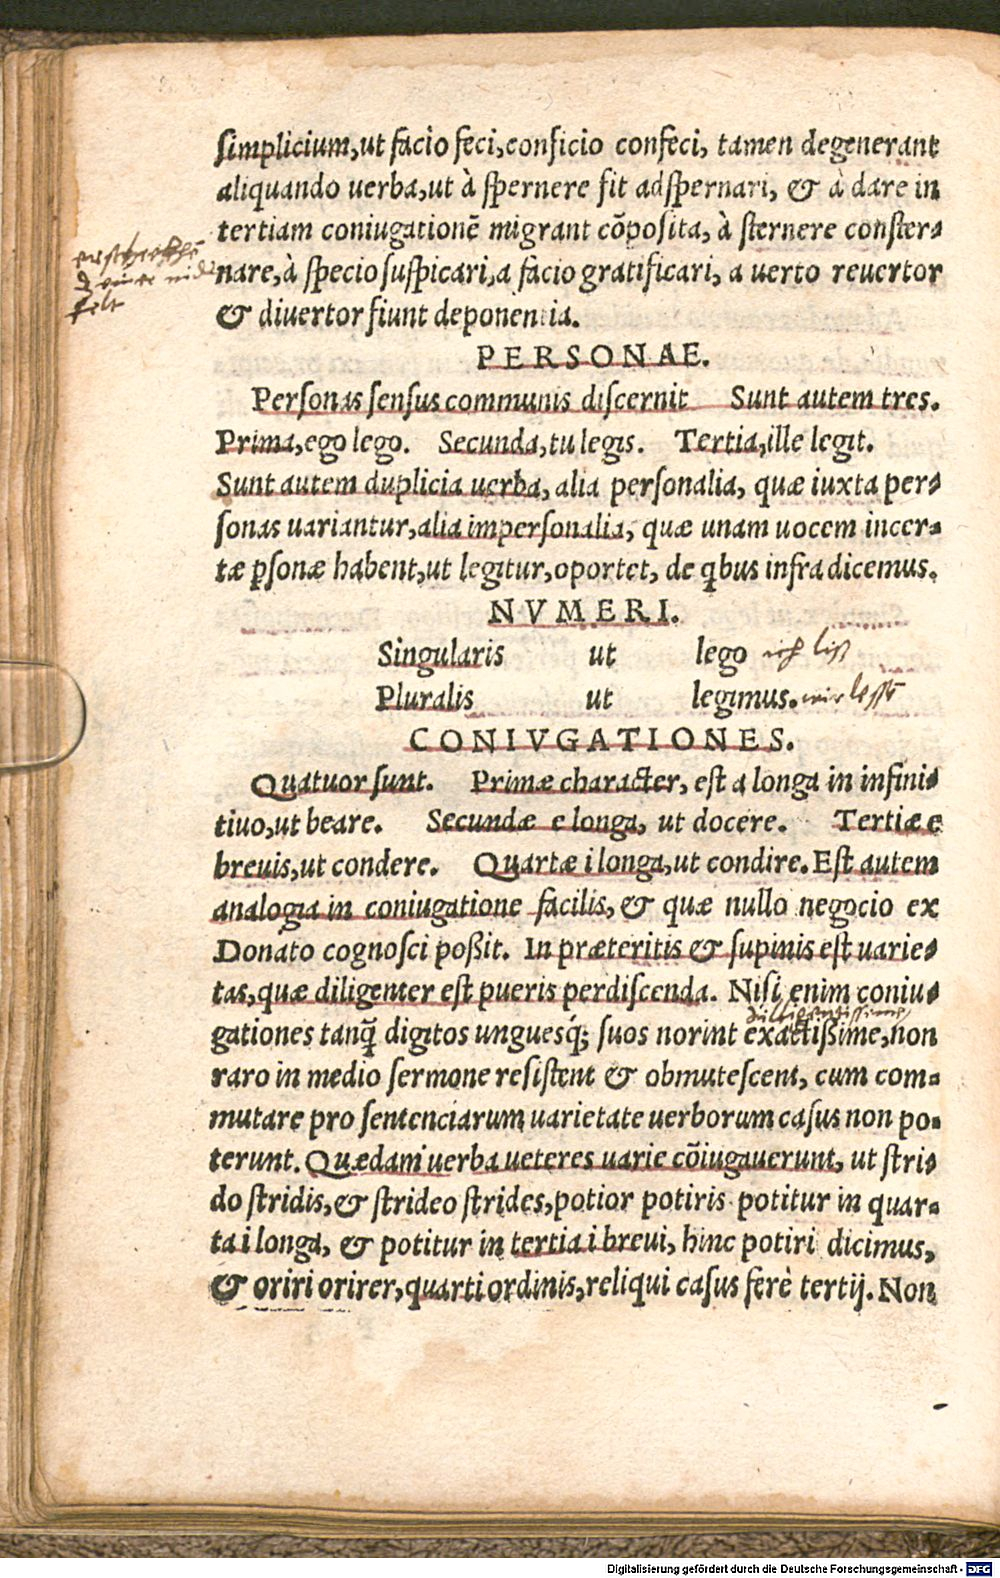 simplicium, ut facio feci, conficio confeci, tamen degenerant
aliquando uerba, ut à spernere fit adspernari, & à dare in
tertiam coniugationē migrant cōposita, à sternere conster-
nare, à specio suspicari, a facio gratificari, a uerto reuertor
& diuertor fiunt deponentia.
PERSONAE.
Personas sensus communis discernit Sunt autem tres.
Prima, ego lego. Secunda, tu legis. Tertia, ille legit.
Sunt autem duplicia uerba, alia personalia, quæ iuxta per-
sonas uariantur, alia impersonalia, quæ unam uocem incer-
tæ ꝑsonæ habent, ut legitur, oportet, de qbus infra dicemus.
NVMERI.
Singularis ut lego ich liß
Pluralis ut legimus. wir lessē
CONIVGATIONES.
Quatuor sunt. Primæ character, est a longa in infini-
tiuo, ut beare. Secundæ e longa, ut docere. Tertiæ e
breuis, ut condere. Quartæ i longa, ut condire. Est autem
analogia in coniugatione facilis, & quæ nullo negocio ex
Donato cognosci poßit. In præteritis & supinis est uarie-
tas, quæ diligenter est pueris perdiscenda. Nisi enim coniu-
diligentissime
gationes tanq̃ digitos unguesq́; suos norint exactißime, non
raro in medio sermone resistent & obmutescent, cum com-
mutare pro sentenciarum uarietate uerborum casus non po-
terunt. Quædam uerba ueteres uarie cōiugauerunt, ut stri-
do stridis, & strideo strides, potior potiris potitur in quar-
ta i longa, & potitur in tertia i breui, hinc potiri dicimus,
& oriri orirer, quarti ordinis, reliqui casus ferè tertij. Non
Digitalisierung gefördert durch die Deutsche Forschungsgemeinschaft - DFG